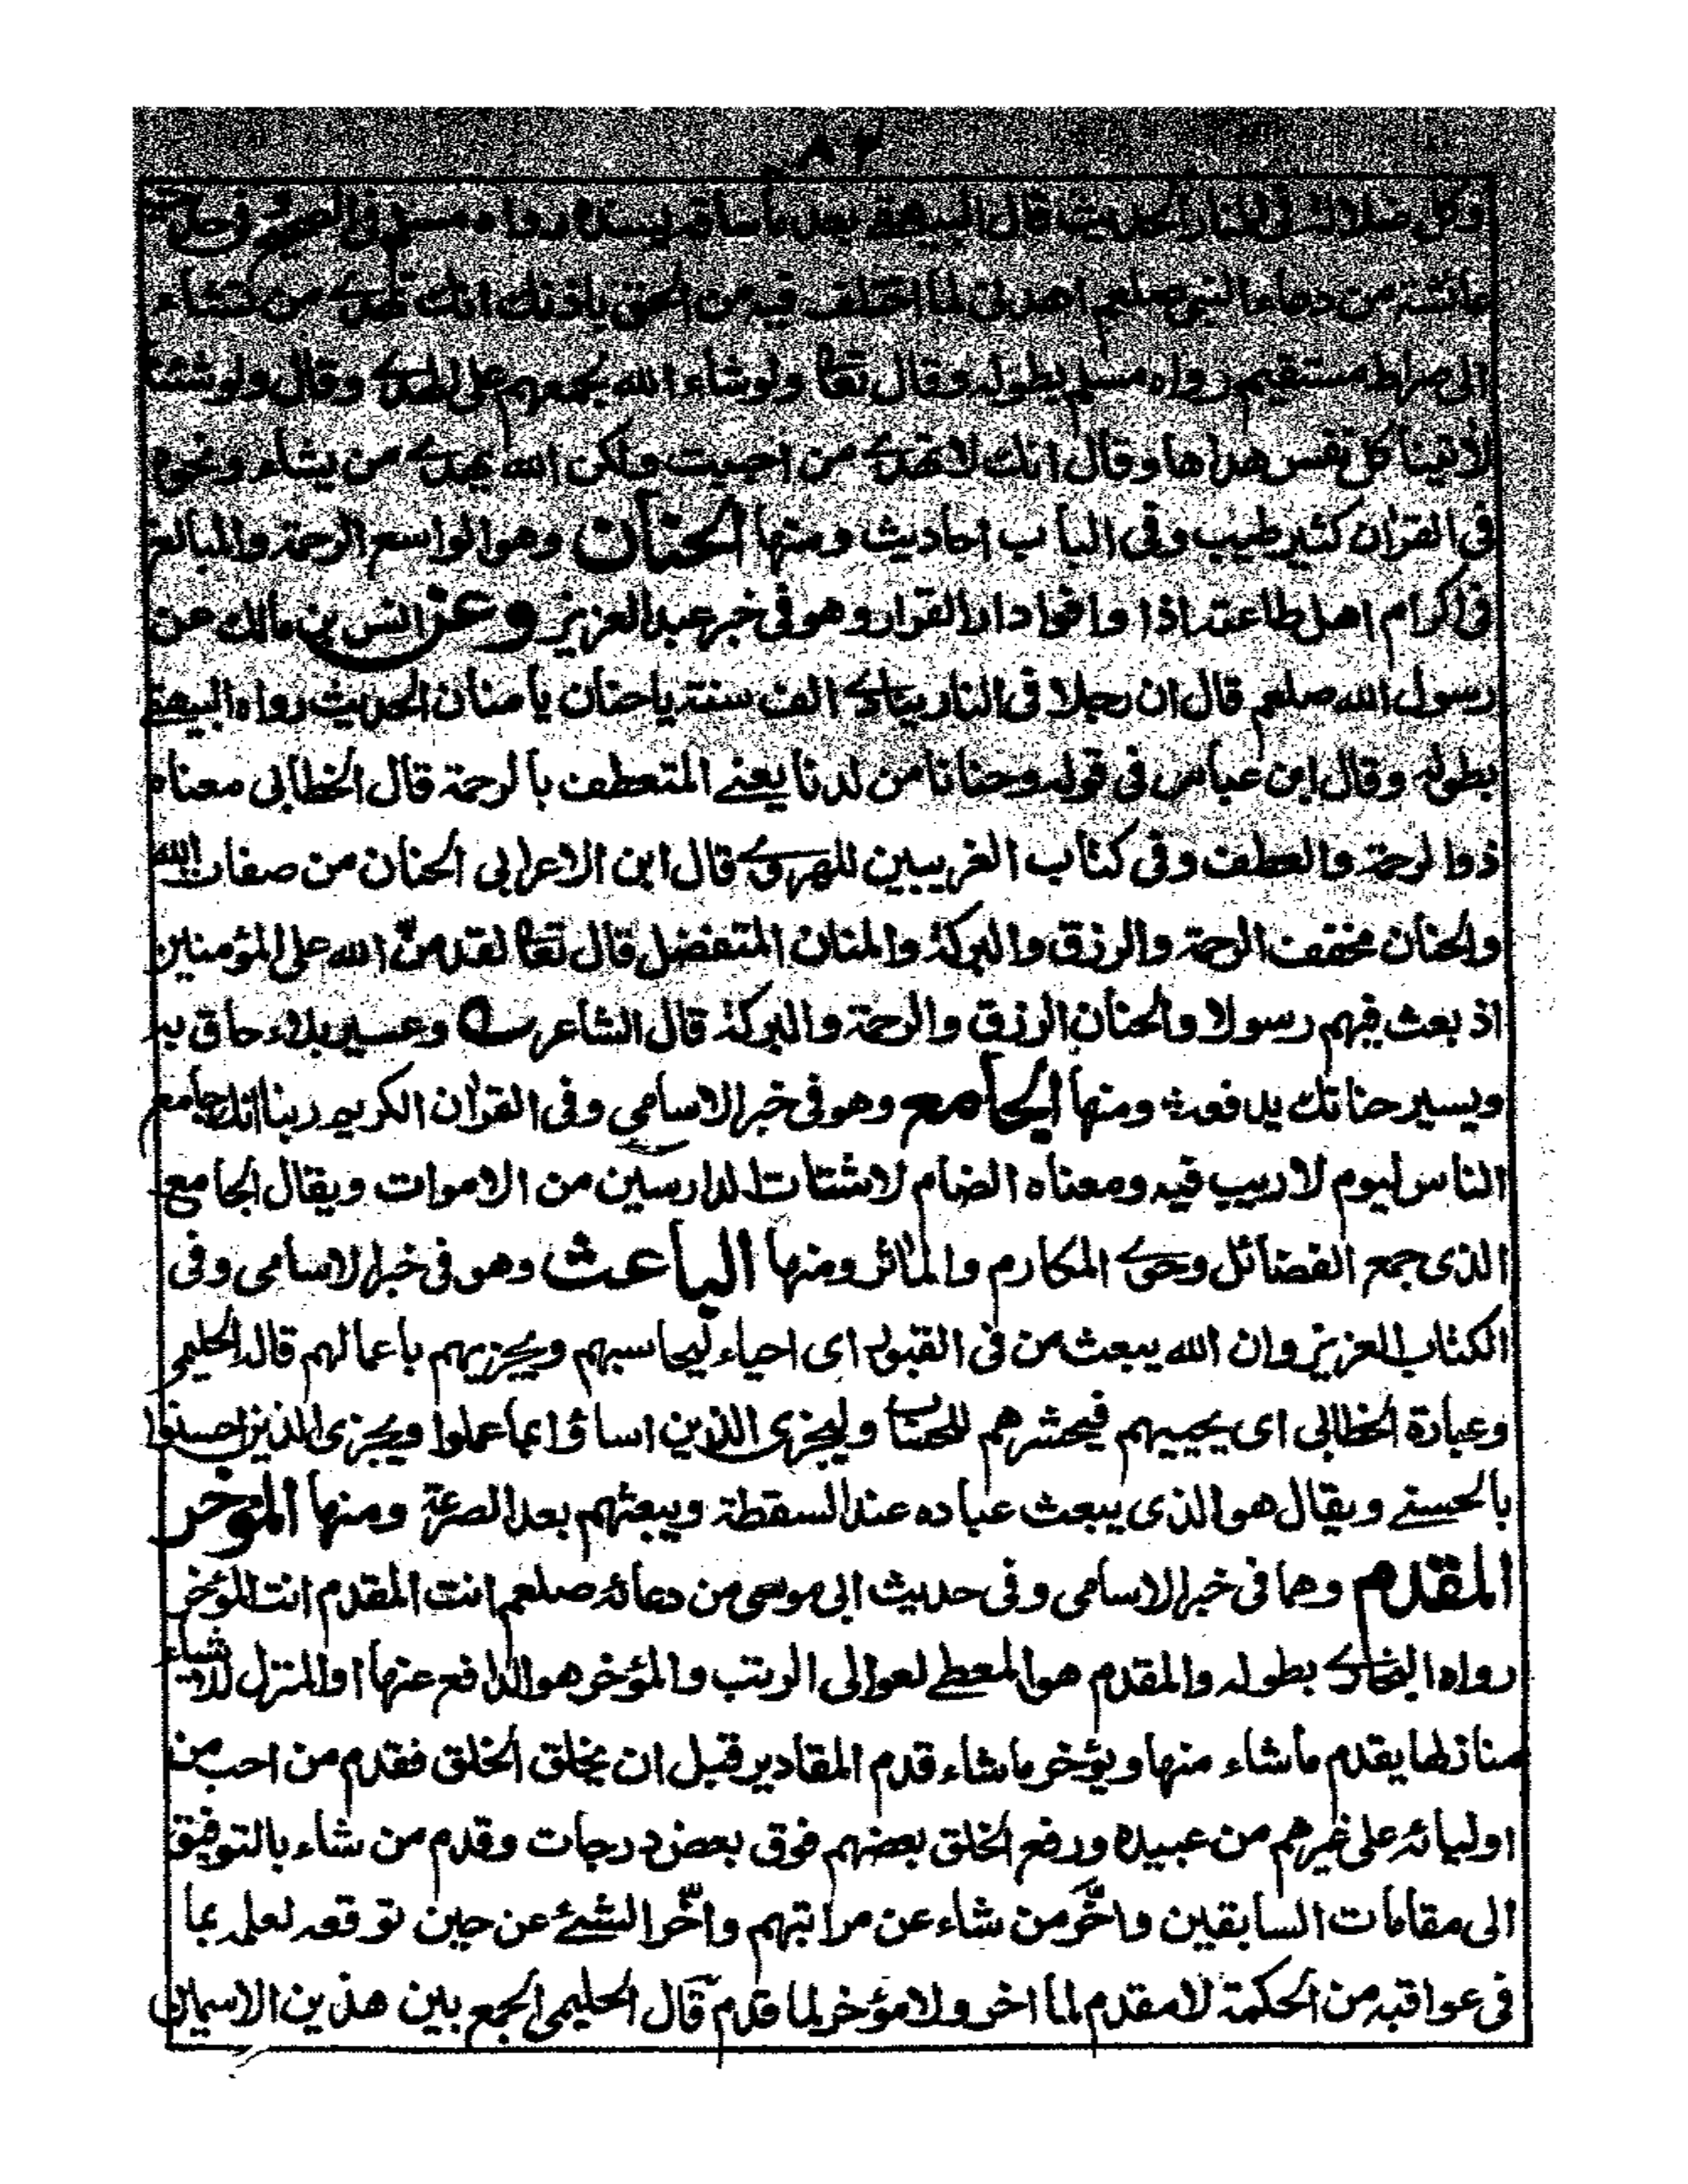 ٨٢
وكل ضلالة في النار الحديث قال البيهقي بعد ما ساقه بسنده رواه مسلم في الصحيح وفي حديث
عائشة من دعاء النبي صلعم اهدني لما اختلف فيه من الحق باذنك انك تهدي من تشاء
الى صراط مستقيم رواه مسلم بطوله وقال تعا ولو شاء الله لجمعهم على الهدى وقال ولو شئنا
لأتينا كل نفس هداها وقال انك لا تهدي من احببت ولكن الله يهدي من يشاء ونحوه
في القران كثير طيب وفي الباب احاديث ومنها الحنان وهو الواسع الرحمة والمبالغ
في اكرام اهل طاعته اذا وافوا دار القرار وهو في خبر عبد العزيز وعن انس بن مالك عن
رسول الله صلعم قال ان رجلا في النار ينادي الف سنة يا حنان يا منان الحديث رواه البيهقي
بطوله وقال ابن عباس في قوله وحنانا من لدنا يعني المتعطف بالرحمة قال الخطابي معناه
ذو الرحمة والعطف وفي كتاب الغريبين للهروي قال ابن الاعرابي الحنان من صفات الله
والحنان مخفف الرحمة والرزق والبركة والمنان المتفضل قال تعا لقد منّ الله على المؤمنين
اذ بعث فيهم رسولا والحنان الرزق والرحمة والبركة قال الشاعر وعسير بلاء حاق به
ويسير حنانك يدفعه ومنها الجامع وهو في خبر الاسامي وفي القران الكريم ربنا انك جامع
الناس ليوم لا ريب فيه ومعناه الضام لاشتات الدارسين من الاموات ويقال الجامع
الذى جمع الفضائل وحوى المكارم والماثر ومنها الباعث وهو في خبر الاسامي وفي
الكتاب العزيز وان الله يبعث من في القبور اى احياء ليحاسبهم ويجزيهم باعمالهم قاله الحليمي
وعبارة الخطابي اى يحييهم فيحشرهم للحساب وليجزى الذين اساؤا بما عملوا ويجزى الذين احسنوا
بالحسنى ويقال هو الذى يبعث عباده عند السقطة ويبعثهم بعد الصرعة ومنها المؤخر
المقدم وهما في خبر الاسامي وفي حديث ابي موسى من دعائه صلعم انت المقدم انت المؤخر
رواه البخاري بطوله والمقدم هو المعطي لعوالي الرتب والمؤخر هو الدافع عنها او المنزل للاشياء
منازلها يقدم ما شاء منها ويؤخر ما شاء قدم المقادير قبل ان يخلق الخلق فقدم من احب من
اوليائه على غيرهم من عبيده ورفع الخلق بعضهم فوق بعض درجات وقدم من شاء بالتوفيق
الى مقامات السابقين واخّر من شاء عن مراتبهم واخّر الشئ عن حين توقعه لعلمه بما
في عواقبه من الحكمة لا مقدم لما اخر ولا مؤخر لما قدم قال الحليمي الجمع بين هذين الاسمين